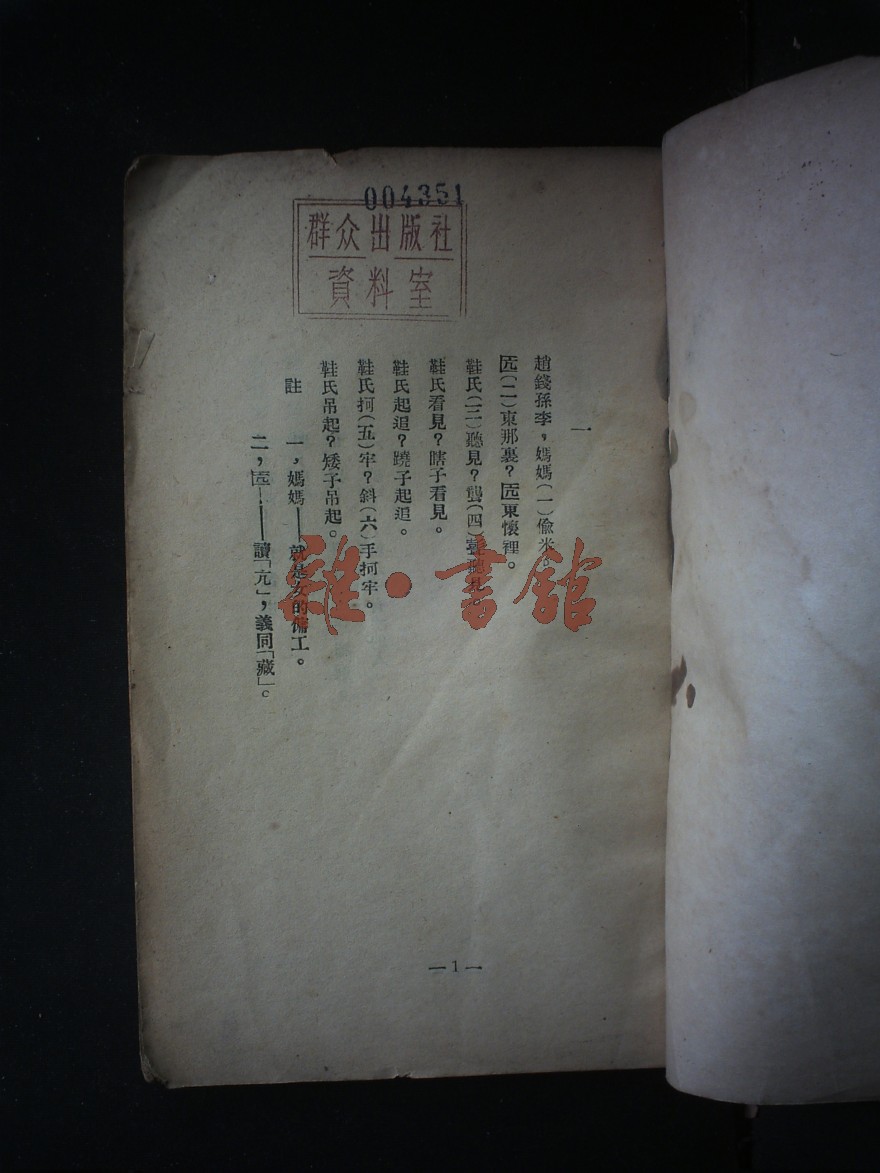 004351
群众出版社
資料室
一
趙錢孫李，媽媽(一)偸米。
匟(二)東那裏？匟東懷裡。
鞋氏(三)聽見？聾(四)聽見。
鞋氏看見？瞎子看見。
鞋氏起追？蹺子起追。
鞋氏抲(五)牢？斜(六)手抲牢。
鞋氏吊起？矮子吊起。
註 一，媽媽——就是女的傭工。
二，匟——讀「亢」，義同「藏」。
—1—
雜·書館